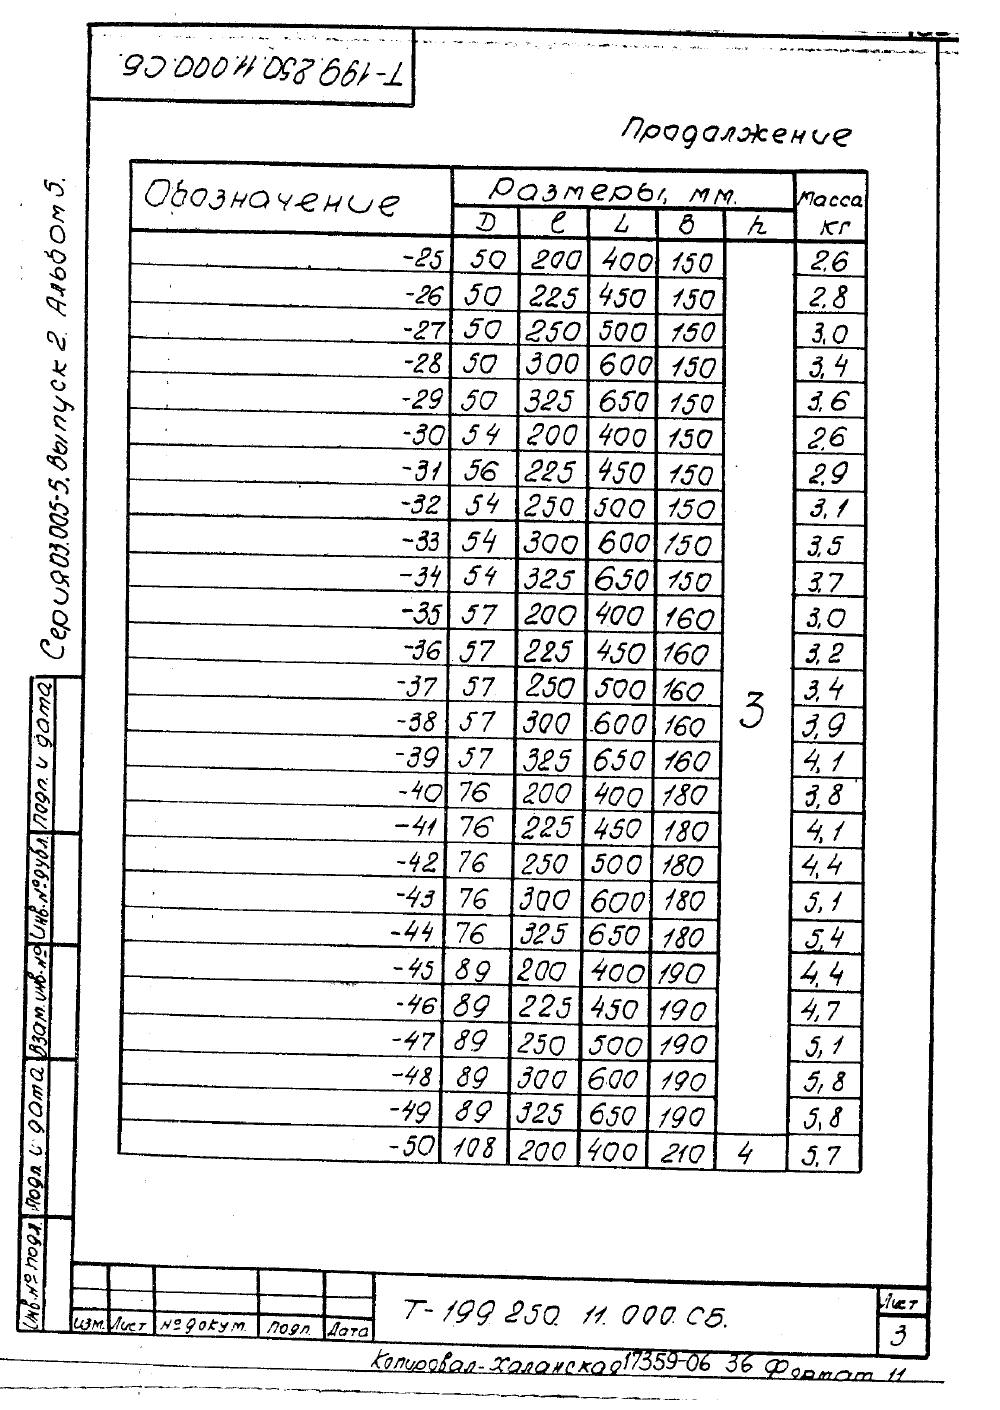 Т-199 250. 11.000.СБ.
Продолжение
Серия 03.005-5. Выпуск 2. Альбом 5.
Обозначение Размеры, мм. Масса кг
D ℓ L В h
-25 50 200 400 150 2,6
-26 50 225 450 150 2,8
-27 50 250 500 150 3,0
-28 50 300 600 150 3,4
-29 50 325 650 150 3,6
-30 54 200 400 150 2,6
-31 56 225 450 150 2,9
-32 54 250 500 150 3,1
-33 54 300 600 150 3,5
-34 54 325 650 150 3,7
-35 57 200 400 160 3,0
-36 57 225 450 160 3,2
-37 57 250 500 160 3 3,4
-38 57 300 600 160 3,9
-39 57 325 650 160 4,1
-40 76 200 400 180 3,8
-41 76 225 450 180 4,1
-42 76 250 500 180 4,4
-43 76 300 600 180 5,1
-44 76 325 650 180 5,4
-45 89 200 400 190 4,4
-46 89 225 450 190 4,7
-47 89 250 500 190 5,1
-48 89 300 600 190 5,8
-49 89 325 650 190 5,8
-50 108 200 400 210 4 5,7
Подп. и дата
Инв.№дубл.
Взам.инв.№
Подп. и дата
Инв.№подл.
Изм. Лист №докум. Подп. Дата
Т-199 250. 11.000.СБ.
Лист
3
Копировал-Халанская 17359-06 36 Формат 11